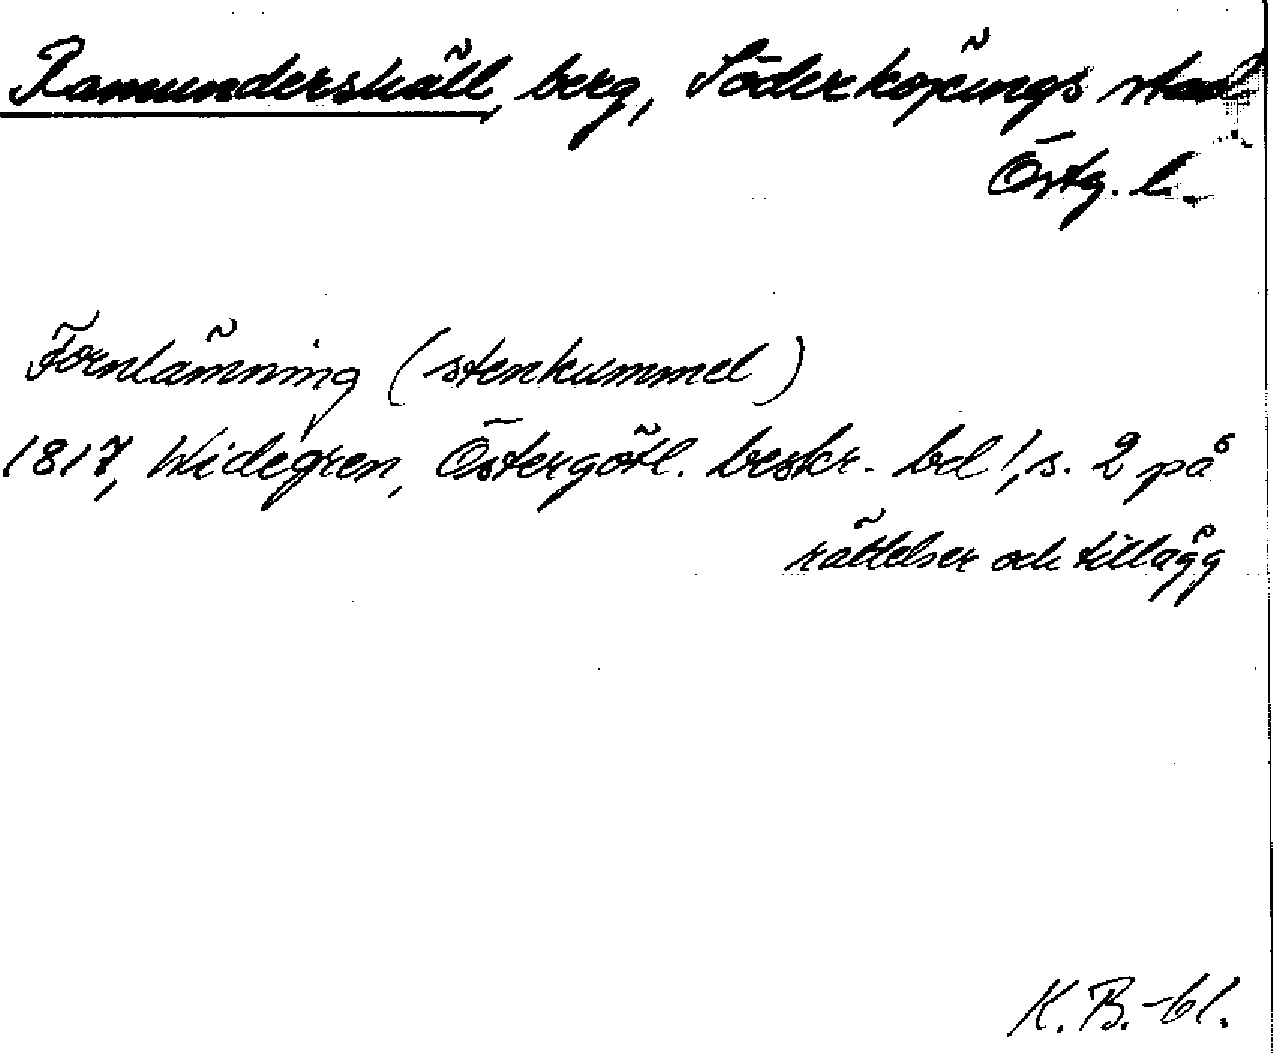 Ramundershäll, berg, Söderköpings stad
Östg. l.
Fornlämning (stenkummel)
1817, Widegren, Östergötl. beskr. bd 1, s. 2 på
rättelser och tillägg
K. B.-bl.